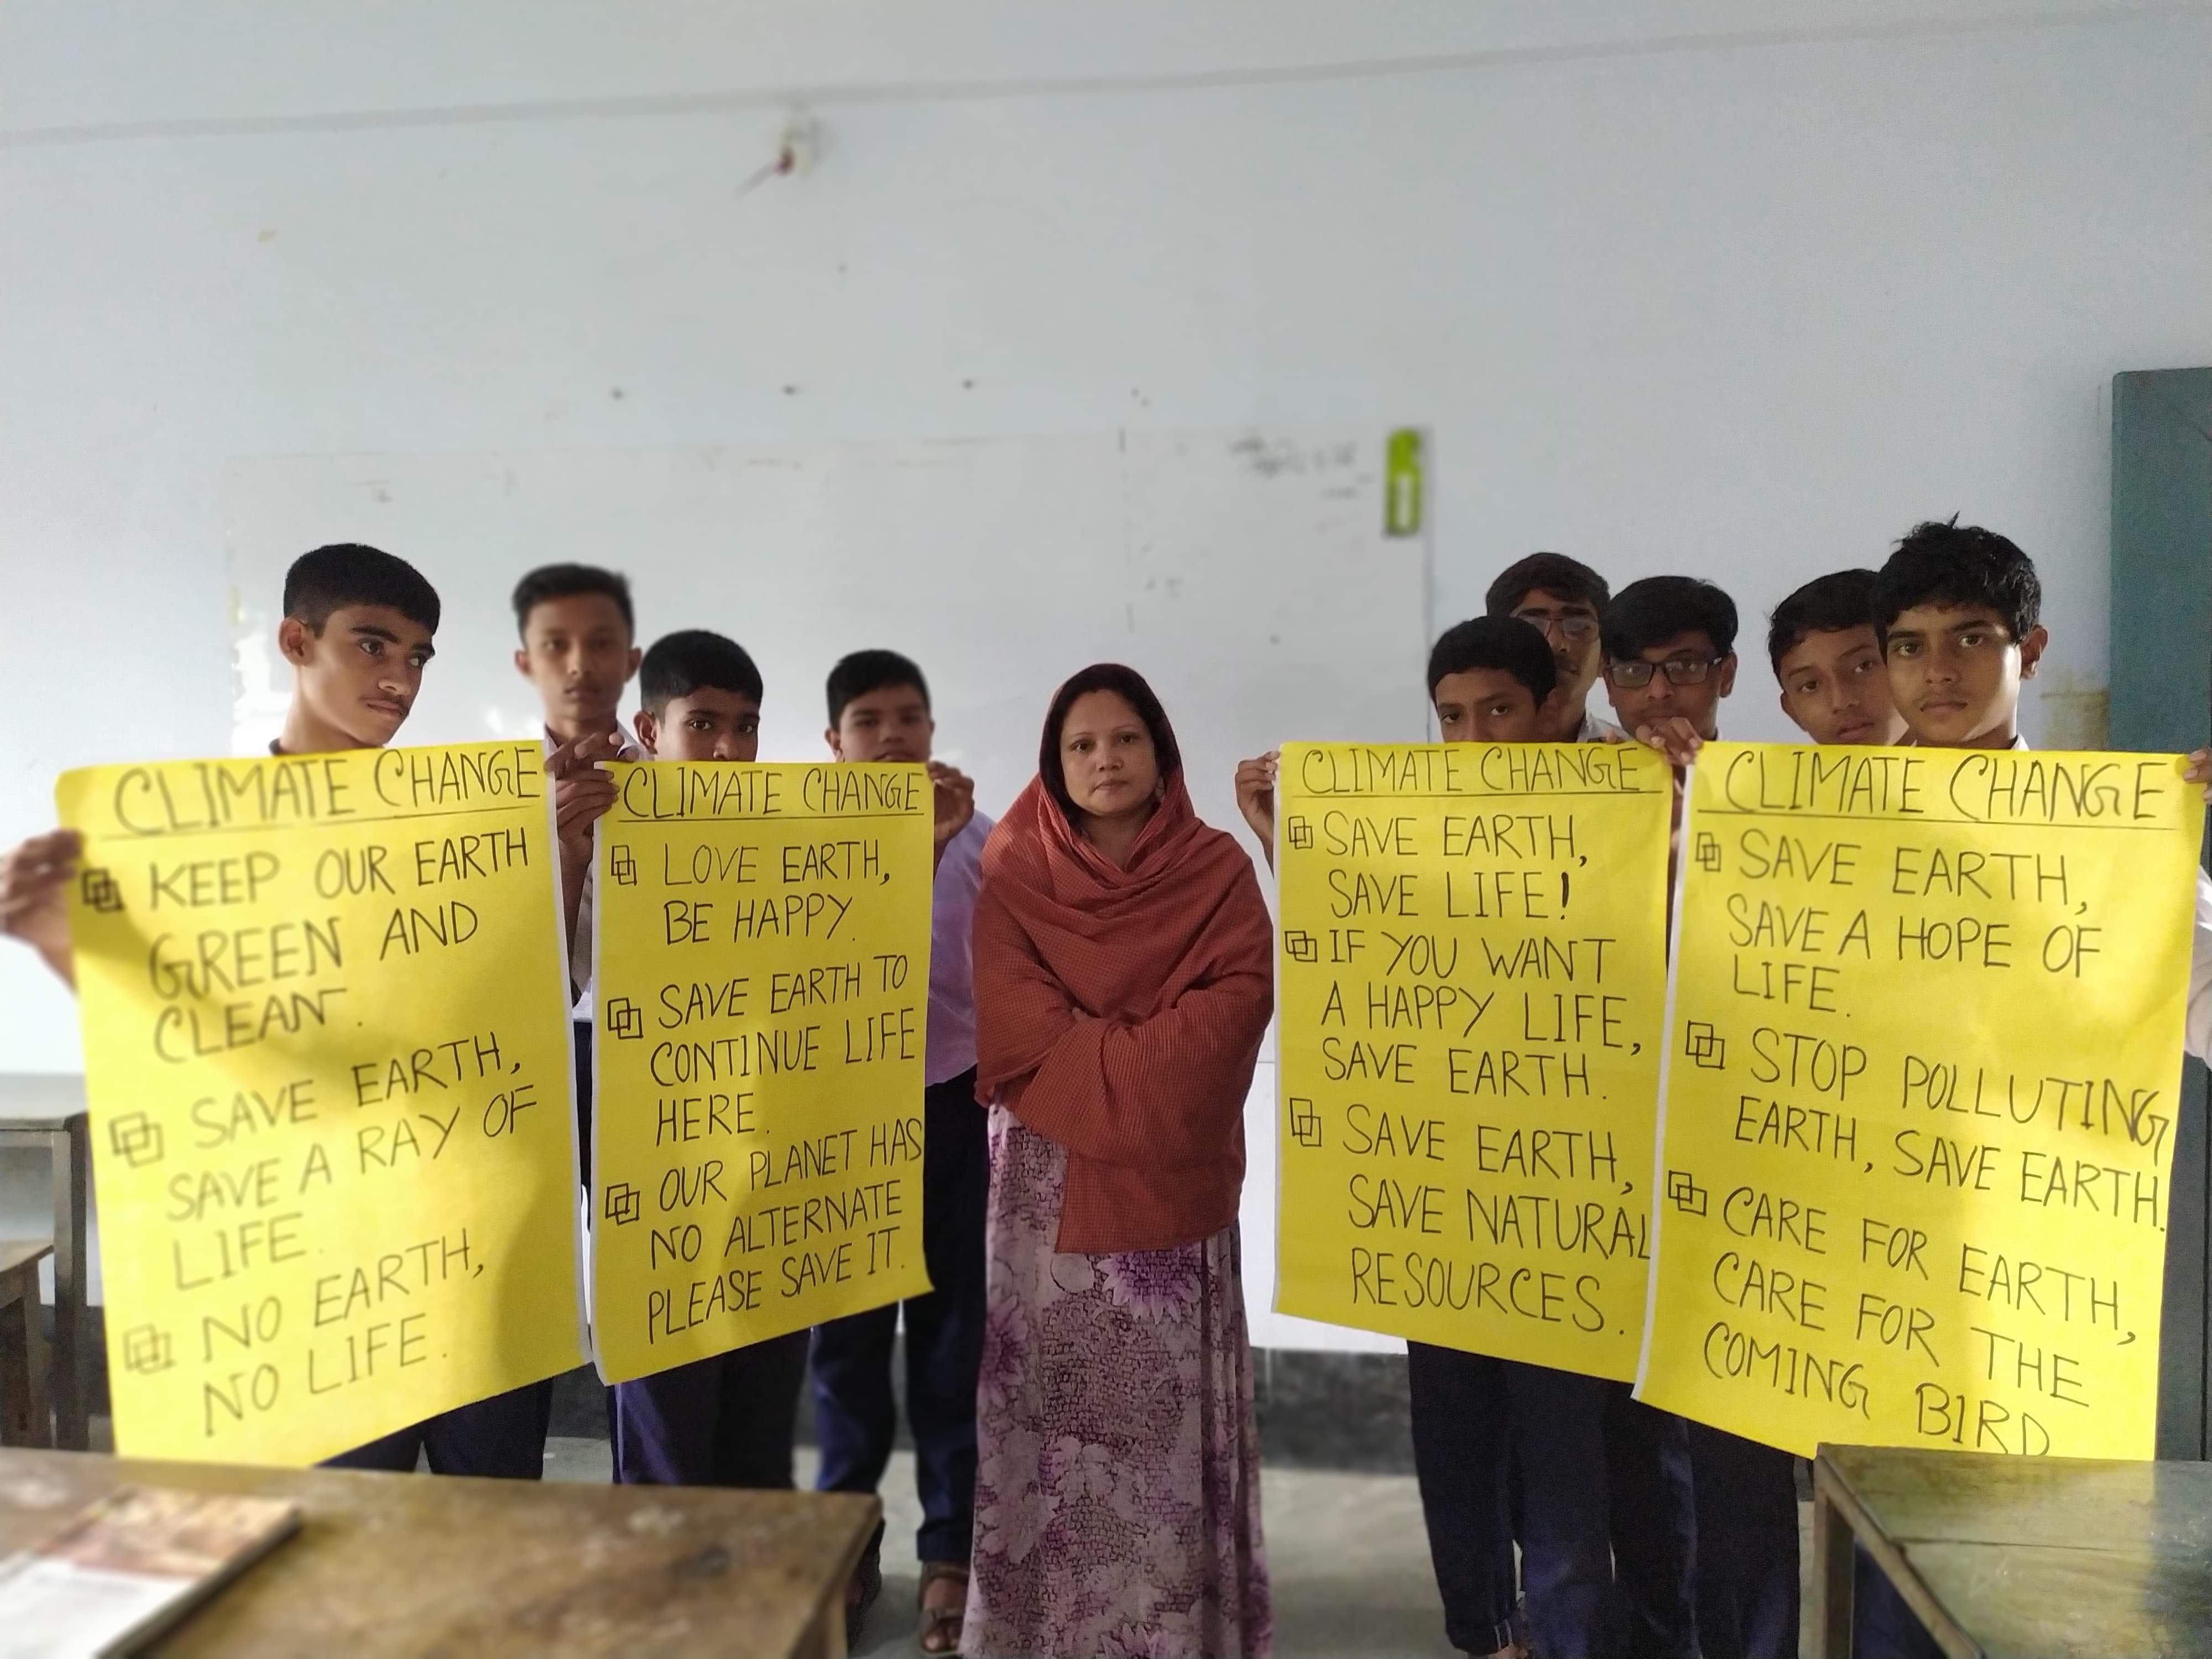 CLIMATE CHANGE
KEEP OUR EARTH
GREEN AND
CLEAN.
SAVE EARTH,
SAVE A RAY OF
LIFE.
NO EARTH,
NO LIFE.
CLIMATE CHANGE
LOVE EARTH,
BE HAPPY.
SAVE EARTH TO
CONTINUE LIFE
HERE.
OUR PLANET HAS
NO ALTERNATE
PLEASE SAVE IT.
CLIMATE CHANGE
SAVE EARTH,
SAVE LIFE!
IF YOU WANT
A HAPPY LIFE,
SAVE EARTH.
SAVE EARTH,
SAVE NATURAL
RESOURCES.
CLIMATE CHANGE
SAVE EARTH,
SAVE A HOPE OF
LIFE.
STOP POLLUTING
EARTH, SAVE EARTH.
CARE FOR EARTH,
CARE FOR THE
COMING BIRD